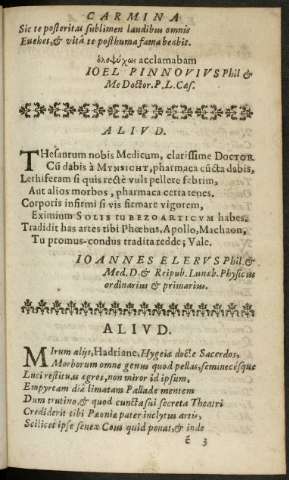 CARMINA
Sic te posteritas sublimen laudibus omnis
Evehet, & vitâ te posthuma fama beabit.
ὁλοψύχως acclamabam
IOEL PINNOVIVS Phil &
Me Doctor. P. L. Cæs.
ALIVD.
THesaurum nobis Medicum, clarissime DOCTOR
Cũ dabis à MYNSICHT, pharmaca cũcta dabis,
Lethiferam si quis rectè vult pellere febrim,
Aut alios morbos, pharmaca certa tenes.
Corporis infirmi si vis firmare vigorem,
Eximium SOLIS tu BEZOARTICVM habes.
Tradidit has artes tibi Phœbus, Apollo, Machaon,
Tu promus-condus tradita redde; Vale.
IOANNES ELERVS Phil. &
Med. D. & Reipub. Luneb. Physicus
ordinarius & primarius.
ALIVD.
MIrum alijs, Hadriane, Hygeiæ docte Sacerdos,
Morborum omne genus quod pellas, semineceśque
Luci restituas ægros, non miror id ipsum,
Empyream diâ limatam Pallade mentem
Dum trutino, & quod cuncta sui secreta Theatri
Crediderit tibi Pæoniæ pater inclytus artis,
Scilicet ipse senex Cous quid ponat, & inde
é 3